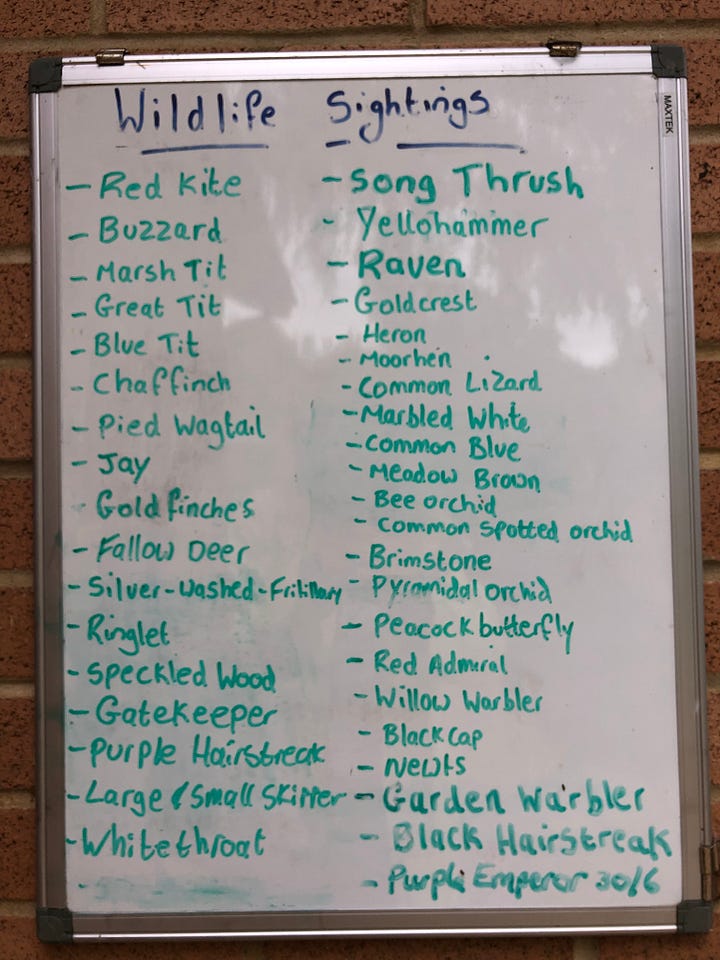 Wildlife Sightings
- Red Kite
- Buzzard
- Marsh Tit
- Great Tit
- Blue Tit
- Chaffinch
- Pied Wagtail
- Jay
- Goldfinches
- Fallow Deer
- Silver-washed-Fritillary
- Ringlet
- Speckled Wood
- Gatekeeper
- Purple Hairstreak
- Large & Small Skipper
- Whitethroat
-
- Song Thrush
- Yellohammer
- Raven
- Goldcrest
- Heron
- Moorhen
- Common Lizard
- Marbled White
- Common Blue
- Meadow Brown
- Bee orchid
- Common Spotted orchid
- Brimstone
- Pyramidal orchid
- Peacock butterfly
- Red Admiral
- Willow Warbler
- Blackcap
- Newts
- Garden Warbler
- Black Hairstreak
- Purple Emperor 30/6
MAXTEK